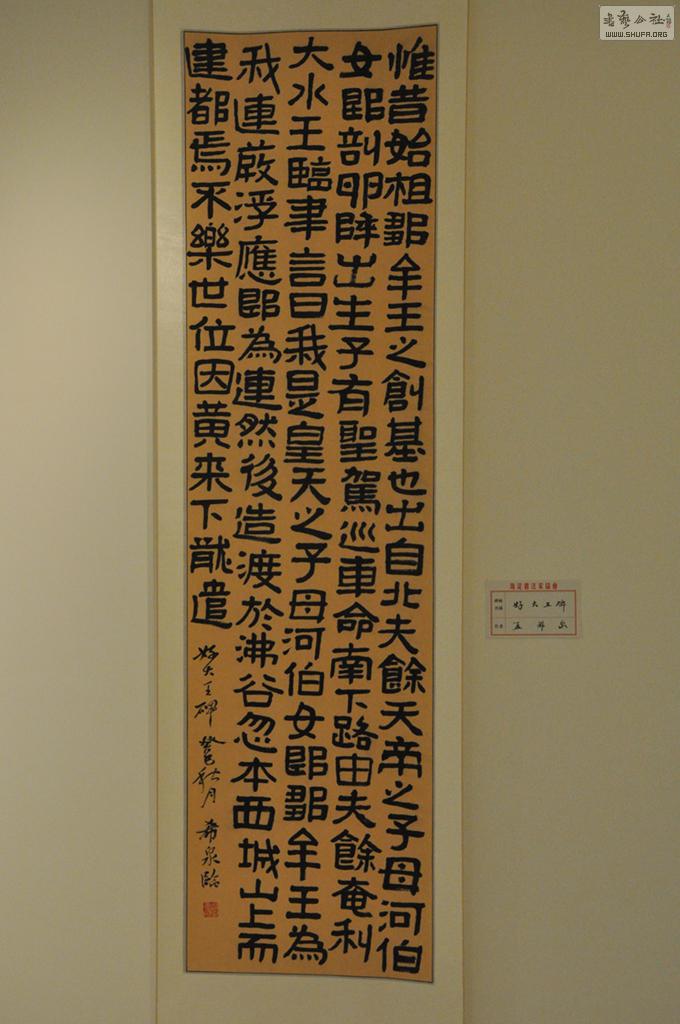 惟昔始祖鄒牟王之創基也出自北夫餘天帝之子母河伯
女郎剖卵降出生子有聖駕巡車命南下路由夫餘奄利
大水王臨聿言曰我是皇天之子母河伯女郎鄒牟王為
我連葭浮應即為連然後造渡於沸谷忽本西城山上而
建都焉不樂世位因黄来下龍遣
好大王碑 癸巳秋月 希泉臨
海淀書法家協會
好大王碑
作者
WWW.SHUFA.ORG